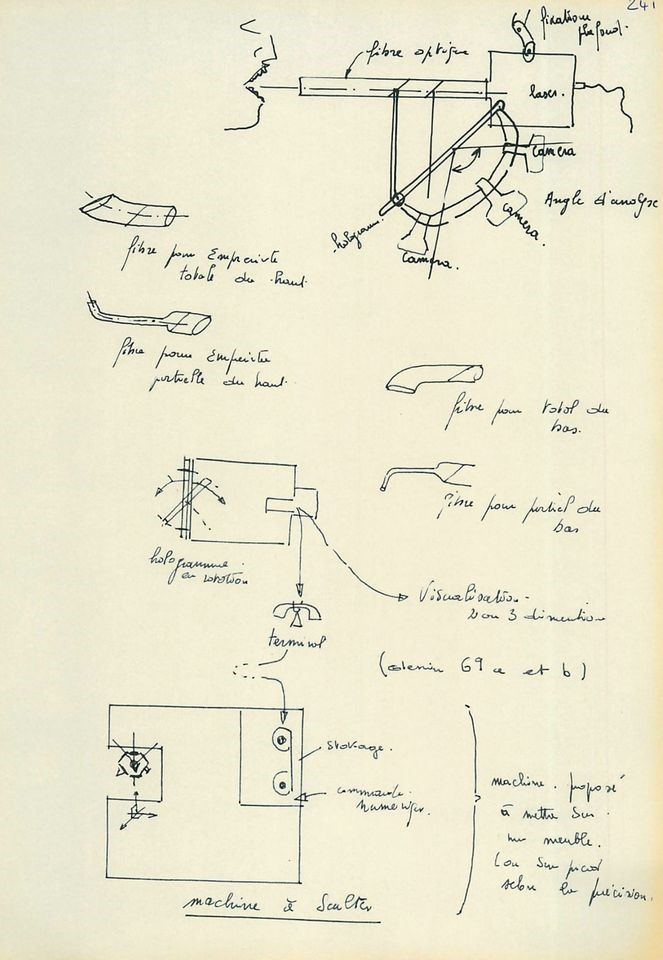 241
fixation
plafond.
fibre optique
laser.
camera
Angle d'analyse
camera.
hologramme.
camera.
fibre pour Empreinte
totale du haut.
fibre pour Empreinte
partielle du haut.
fibre pour total du
bas.
fibre pour partiel du
bas
hologramme
en rotation
Visualisation.
2 ou 3 dimention
terminal
(dessin 69 a et b)
stockage.
commande
numerique.
machine proposé
à mettre sur
un meuble.
(ou sur pied
selon la précision.
machine à Sculter